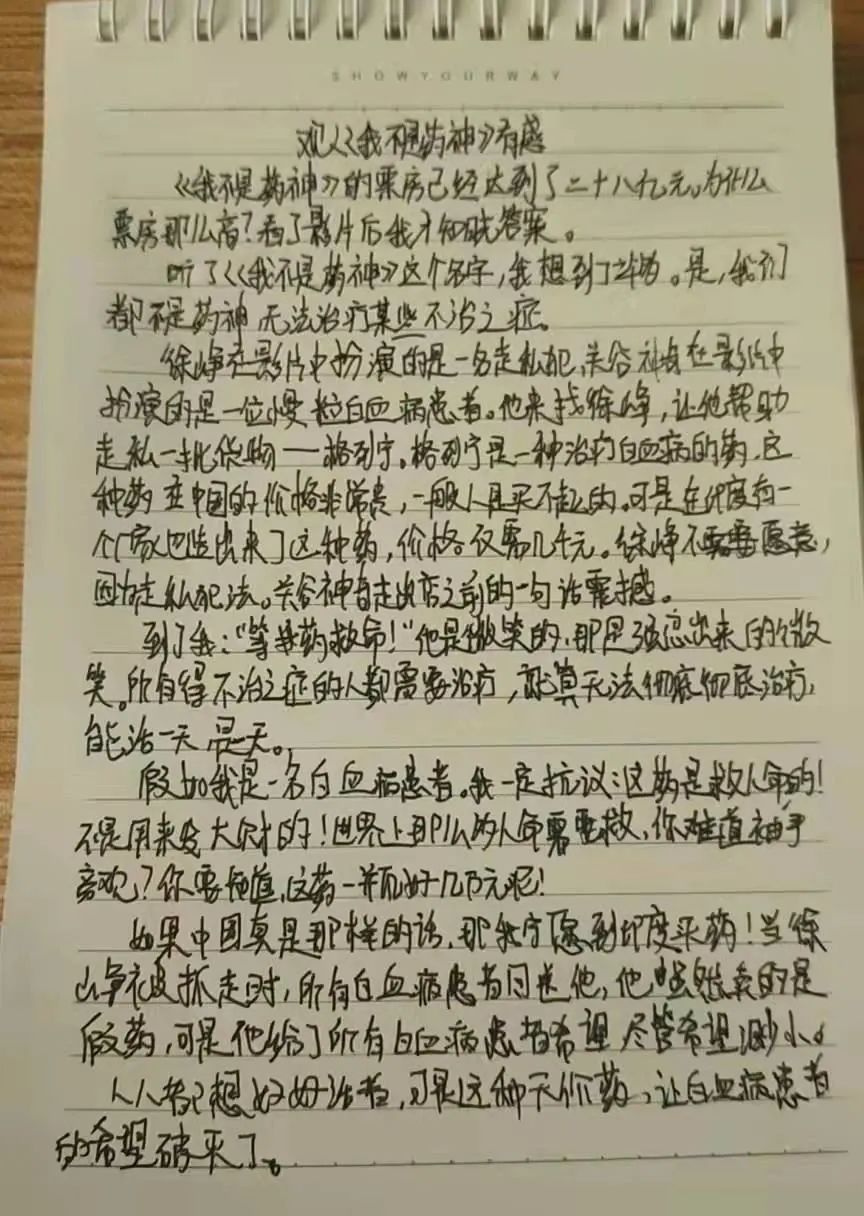 SHOWYOURWAY
观《我不是药神》有感
《我不是药神》的票房已经达到了二十八亿元。为什么
票房那么高?看了影片后我才知晓答案。
听了《我不是药神》这个名字,我想到了。是,我们
都不是药神 无法治疗某些不治之症。
徐峥在影片中扮演的是一名走私犯,关谷神奇在影片中
扮演的是一位慢粒白血病患者。他来找徐峥,让他帮助
走私一批货物——格列宁。格列宁是一种治疗白血病的药,这
种药在中国的价格非常贵,一般人是买不起的。可是在印度有一
个厂家也造出来了这种药,价格仅需几千元。徐峥不愿意,
因为走私犯法。关谷神奇走出店之前的一句话震撼
到了我:“等着药救命!”他是微笑的,那是强忍出来的微
笑。所有得不治之症的人都需要治疗,就算无法彻底彻底治疗,
能活一天是一天。
假如我是一名白血病患者。我一定抗议:这药是救人命的!
不是用来发大财的!世界上那么多人命需要救,你难道袖手
旁观?你要知道,这药一瓶好几万元呢!
如果中国真是那样的话,那我宁愿到印度买药!当徐
峥被抓走时,所有白血病患者目送他,他虽然卖的是
假药,可是他给了所有白血病患者希望 尽管希望渺小。
人人都想好好活着,可是这种天价药,让白血病患者
的希望破灭了。